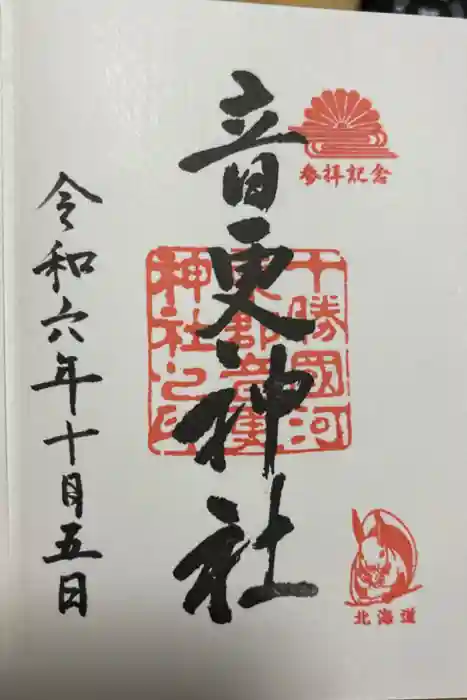 参拝記念
音更神社
十勝國河
東郡音更
神社之印
北海道
令和六年十月五日